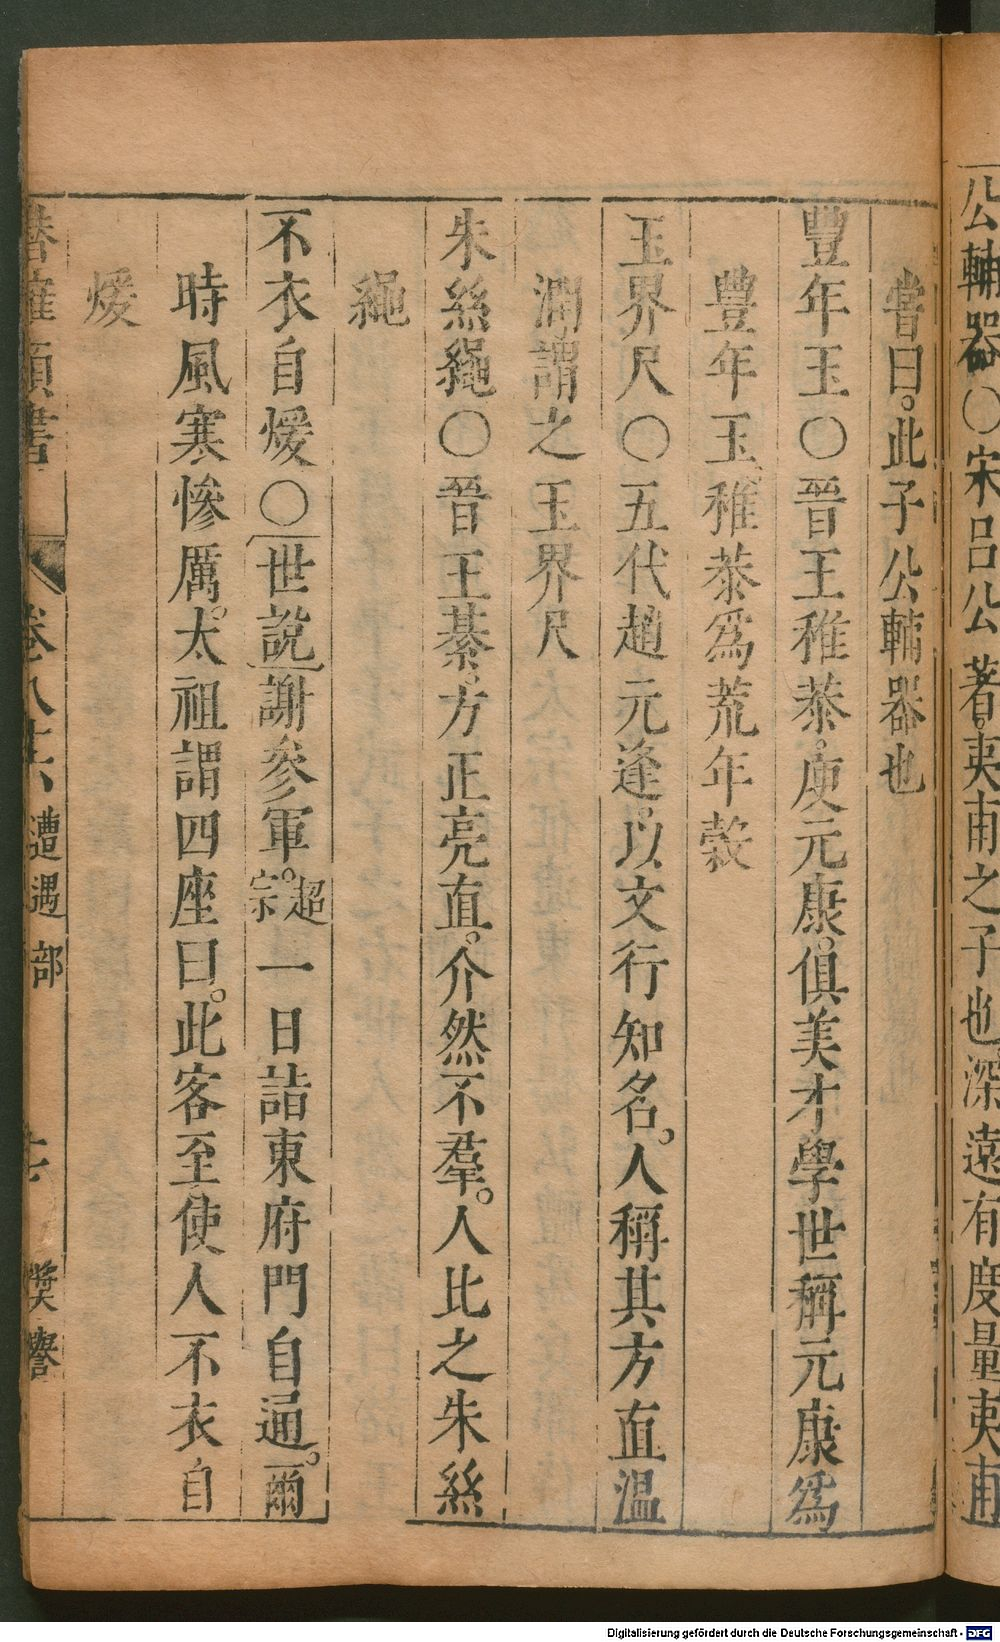 公輔器〇宋呂公著。夷甫之子也深遠有度量夷甫
嘗曰。此子公輔器也
豐年玉〇晉王稚恭。庾元康。俱美才學世稱元康爲
豐年玉。稚恭爲荒年穀
玉界尺〇五代趙元逢。以文行知名。人稱其方直温
潤謂之玉界尺
朱絲繩〇晉王綦。方正亮直。介然不羣。人比之朱絲
繩
不衣自煖〇世說謝參軍。超宗一日詣東府門自通。爾
時風寒慘厲。太祖謂四座曰。此客至使人不衣自
煖
潛確類書 卷八十六 遭遇部 獎譽
Digitalisierung gefördert durch die Deutsche Forschungsgemeinschaft - DFG